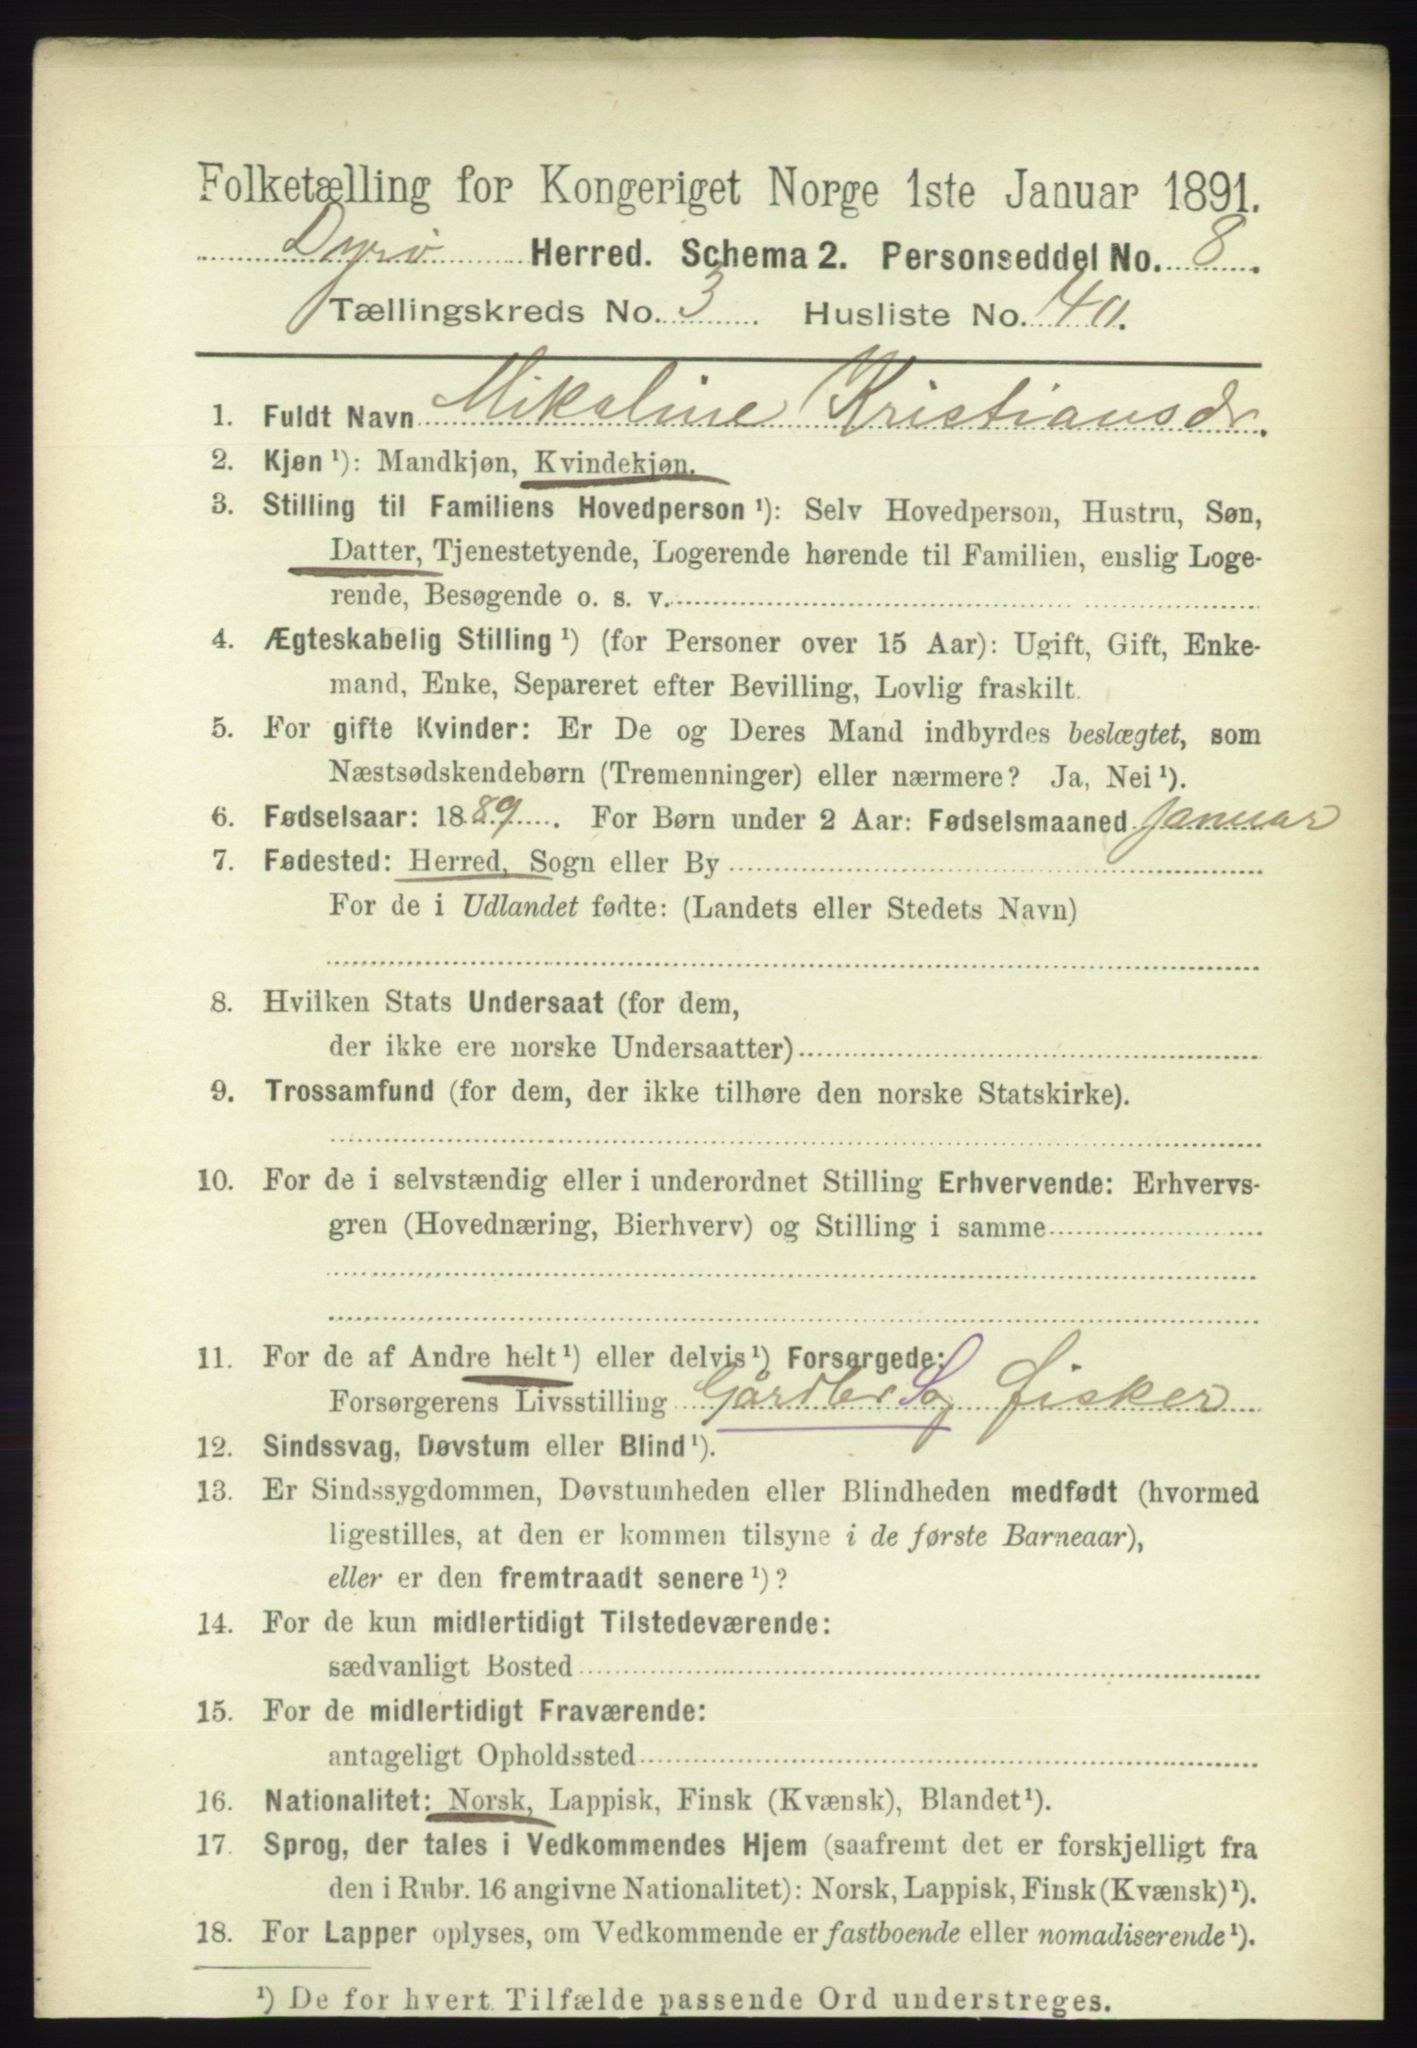 Folketælling for Kongeriget Norge 1ste Januar 1891.
Dyrö Herred. Schema 2. Personseddel No. 8.
Tællingskreds No. 3 Husliste No. 40.
1. Fuldt Navn Mikaline Kristiansdr.
2. Kjøn ¹): Mandkjøn, Kvindekjøn.
3. Stilling til Familiens Hovedperson ¹): Selv Hovedperson, Hustru, Søn,
Datter, Tjenestetyende, Logerende hørende til Familien, enslig Loge-
rende, Besøgende o. s. v.
4. Ægteskabelig Stilling ¹) (for Personer over 15 Aar): Ugift, Gift, Enke-
mand, Enke, Separeret efter Bevilling, Lovlig fraskilt.
5. For gifte Kvinder: Er De og Deres Mand indbyrdes beslægtet, som
Næstsødskendebørn (Tremenninger) eller nærmere? Ja, Nei ¹).
6. Fødselsaar: 1889. For Børn under 2 Aar: Fødselsmaaned Januar
7. Fødested: Herred, Sogn eller By
For de i Udlandet fødte: (Landets eller Stedets Navn)
8. Hvilken Stats Undersaat (for dem,
der ikke ere norske Undersaatter)
9. Trossamfund (for dem, der ikke tilhøre den norske Statskirke).
10. For de i selvstændig eller i underordnet Stilling Erhvervende: Erhvervs-
gren (Hovednæring, Bierhverv) og Stilling i samme
11. For de af Andre helt ¹) eller delvis ¹) Forsørgede:
Forsørgerens Livsstilling Gårdbr S og fisker
12. Sindssvag, Døvstum eller Blind ¹).
13. Er Sindssygdommen, Døvstumheden eller Blindheden medfødt (hvormed
ligestilles, at den er kommen tilsyne i de første Barneaar),
eller er den fremtraadt senere ¹)?
14. For de kun midlertidigt Tilstedeværende:
sædvanligt Bosted
15. For de midlertidigt Fraværende:
antageligt Opholdssted
16. Nationalitet: Norsk, Lappisk, Finsk (Kvænsk), Blandet ¹).
17. Sprog, der tales i Vedkommendes Hjem (saafremt det er forskjelligt fra
den i Rubr. 16 angivne Nationalitet): Norsk, Lappisk, Finsk (Kvænsk) ¹).
18. For Lapper oplyses, om Vedkommende er fastboende eller nomadiserende ¹).
¹) De for hvert Tilfælde passende Ord understreges.